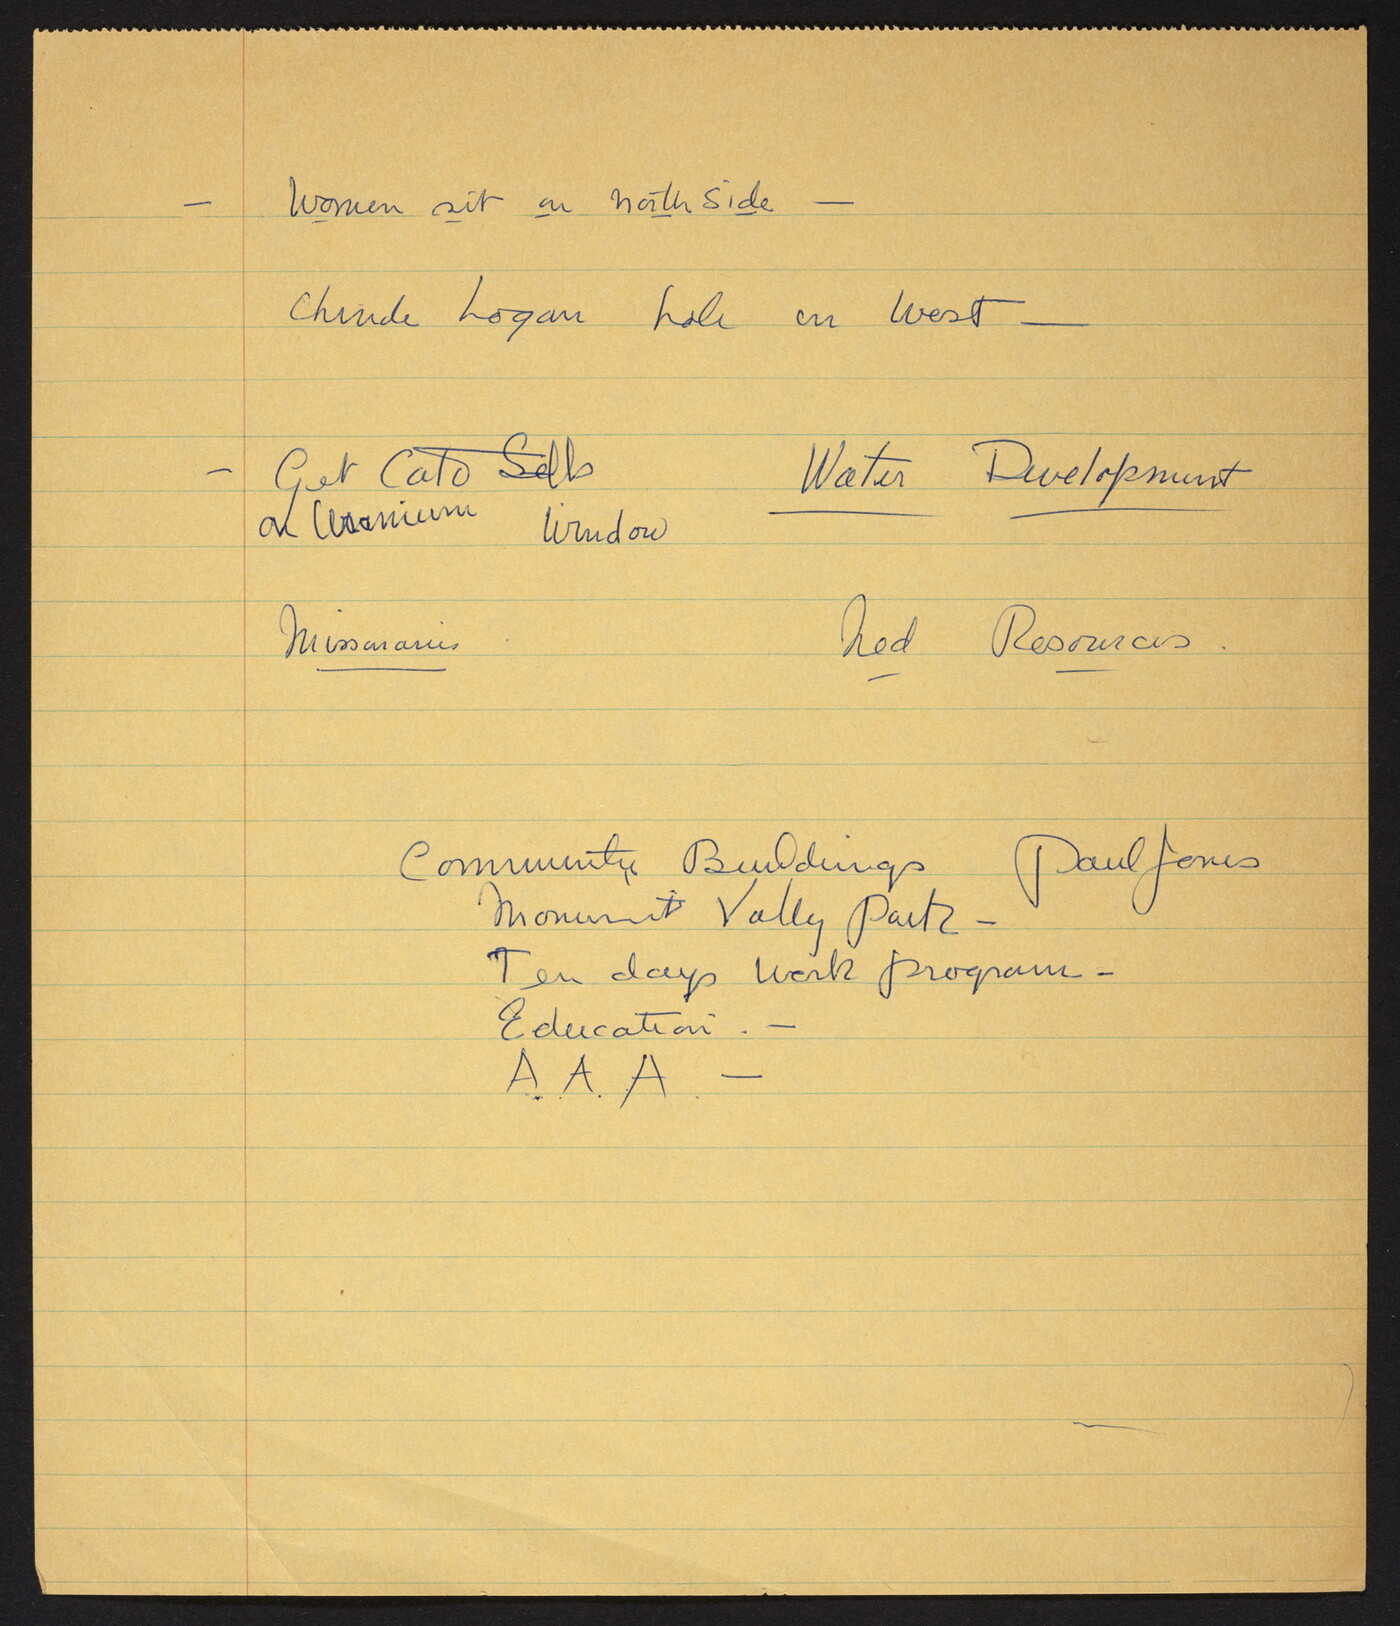 — Women sit on north side —
Chinde hogan hole on West —
— Get Cato Sells
on Uranium Window
Water Development
Missionaries
Ned Resources.
Community Buildings Paul Jones
Monument Valley Park –
Ten days work program –
Education. —
A.A.A. —